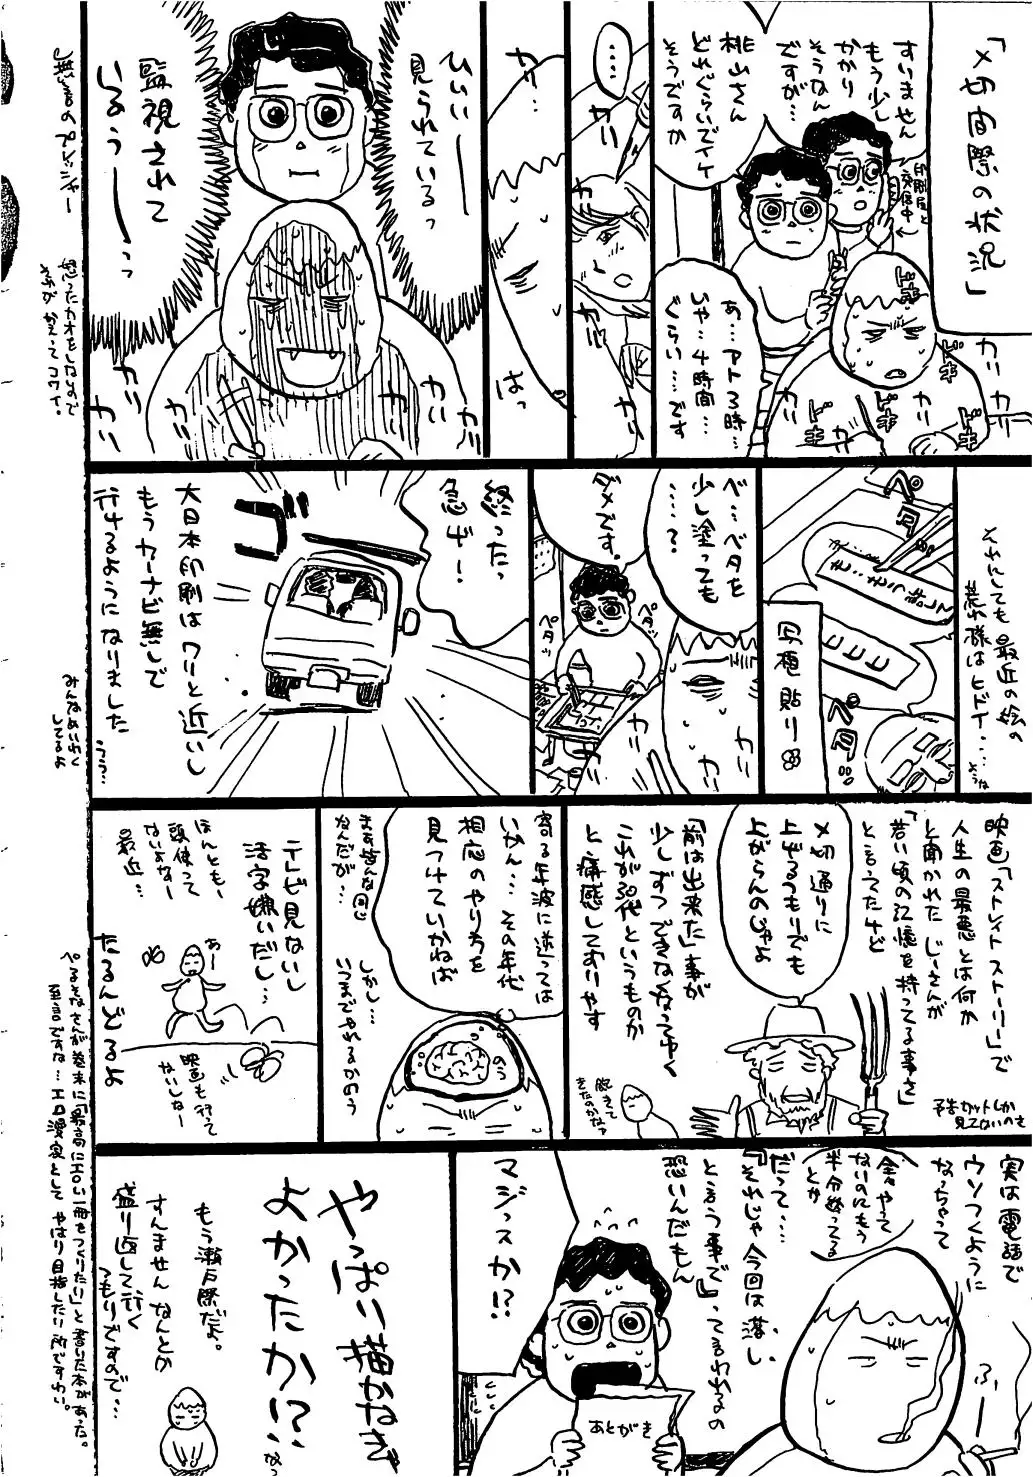 「〆切間際の状況」
すいません
もう少し
かかり
そうなん
ですが…
印刷屋と
交信中
桃山さん
どれぐらいでイケ
そうですか
ドキ
ドキ
ドキ
ドキ
ドキ
カリ
カリ
あ…アト3時…
いや…4時間…
ぐらい……です
……
カリ
カリ
カリ…
はっ
ひぃぃー
見られているっ
監視されて
いるぅーーっっ
カリ
カリ
カリ
カリ
無言のプレッシャー
怒ったカオをしないので
それがかえってコワイ。
それにしても最近の絵の
荒れ様はヒドイ…
ペタ
ペタ
写植貼り
ベ…ベタを
少し塗っても
……?
ダメです。
ペタッ
ペタッ
カリ
カリ
終ったっ
急げー!
ゴ
大日本印刷はワリと近いし
もうカーナビ無しで
行けるようになりました
うう…
みんなめいわく
してるよ
映画「ストレイトストーリー」で
人生の最悪とは何か
と聞かれたじーさんが
「若い頃の記憶を持ってる事さ」
と言ってたけど
予告カットしか
見てないのき
〆切通りに
上げるつもりでも
上がらんのじゃよ
「前は出来た」事が
少しずつできなくなってゆく
これが30代というものか
と痛感しておりやす
寄る年波に逆っては
いかん…その年代
相応のやり方を
見つけていかねば
のう
まあ皆んな同じ
なんだが…
しかし…
いつまでやれるかのう
テレビ見ないし
活字嫌いだし…
ほんともー
頭使って
ないよなー
最近…
あー
映画も行って
ないしなー
たるんどるよ
実は電話で
ウソつくように
なっちゃって
全々やって
ないのにもう
半分終ってる
とか
だって…
『それじゃ今回は落し、
という事で』って言われるの
恐いんだもん
ふー
マジっスか!?
あとがき
やっぱり描かなきゃ
よかったか!?
もう瀬戸際だよ。
すんませんなんとか
盛り返して行く
つもりですので…
ぺるそなさんが巻末に「最高にエロい一冊をつくりたい」と書いた本があった。
至言ですな…エロ漫家としてやはり目指したい所ですわい。